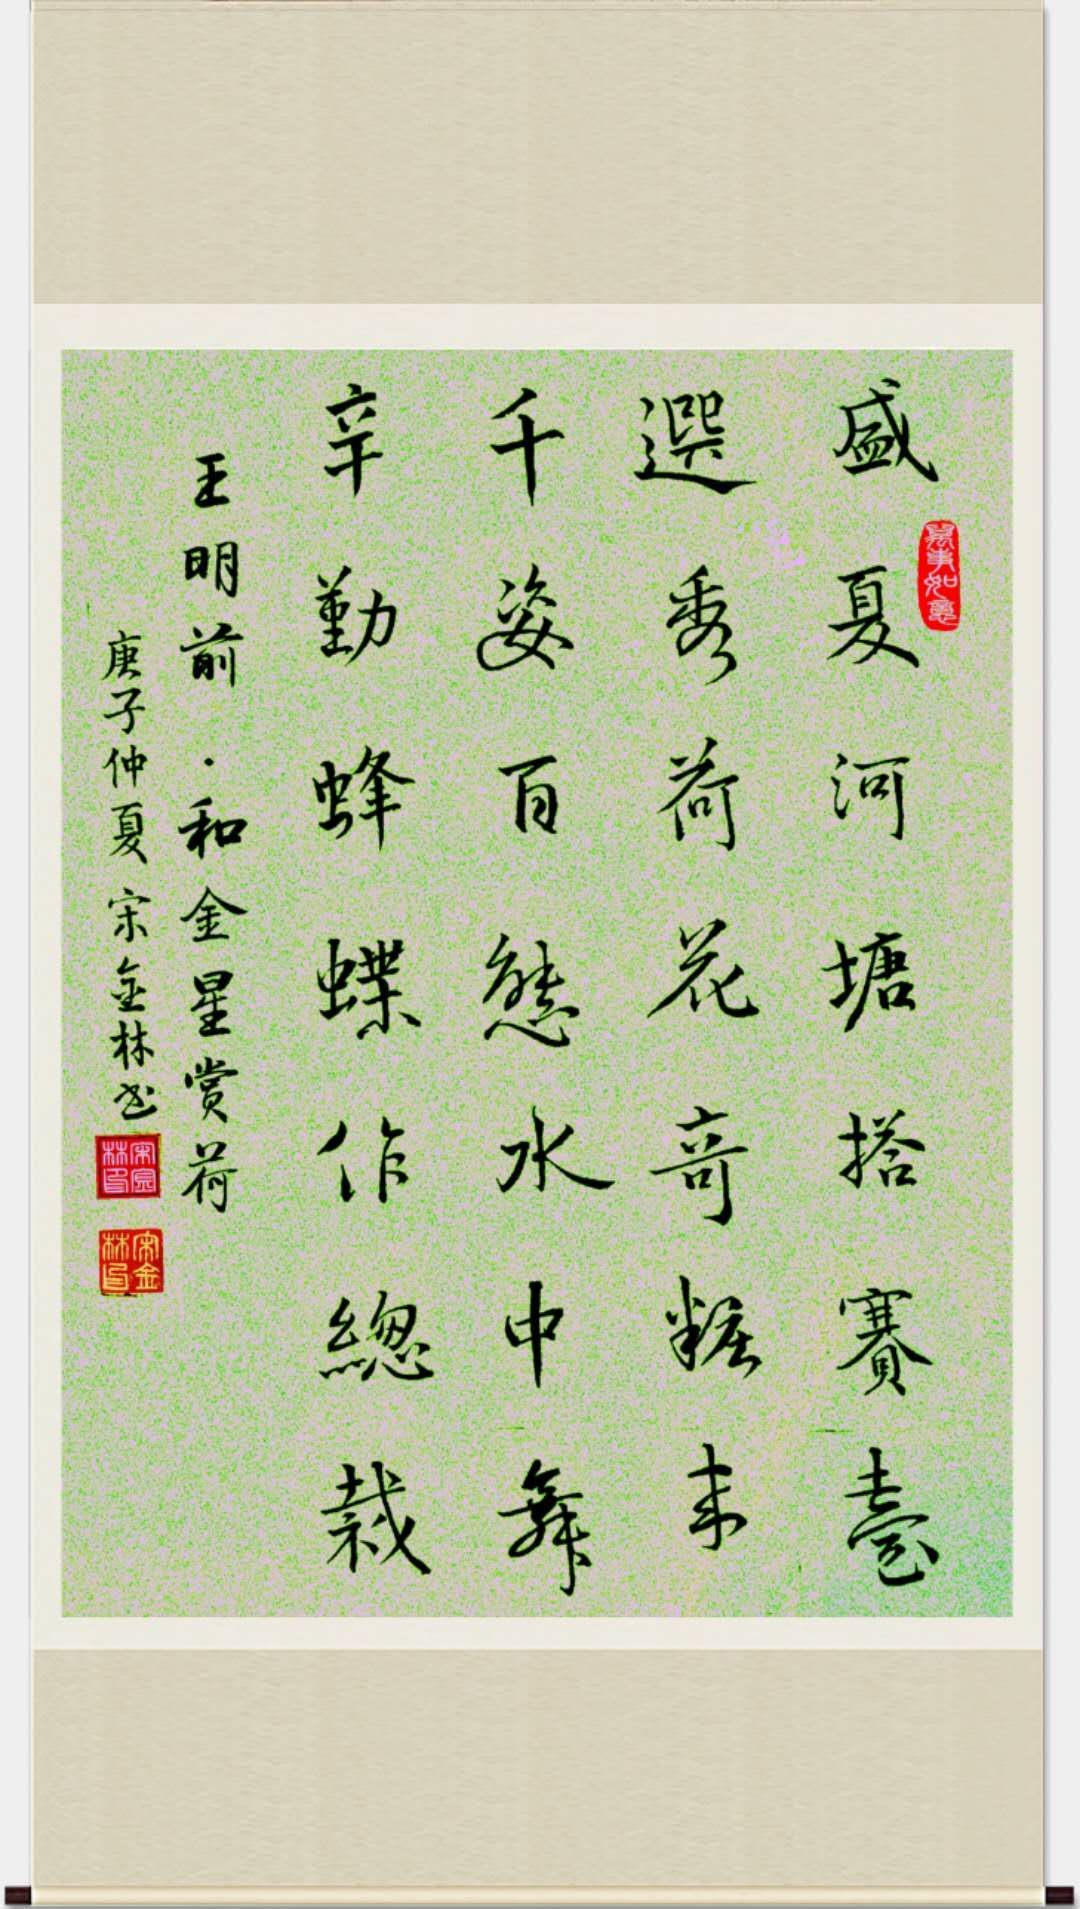 盛夏河塘搭賽臺
選秀荷花竒粧来
千姿百態水中舞
辛勤蜂蝶作總裁
王明前·和金星賞荷
庚子仲夏 宋金林书
萬事如意
宋金林印
宋金林印